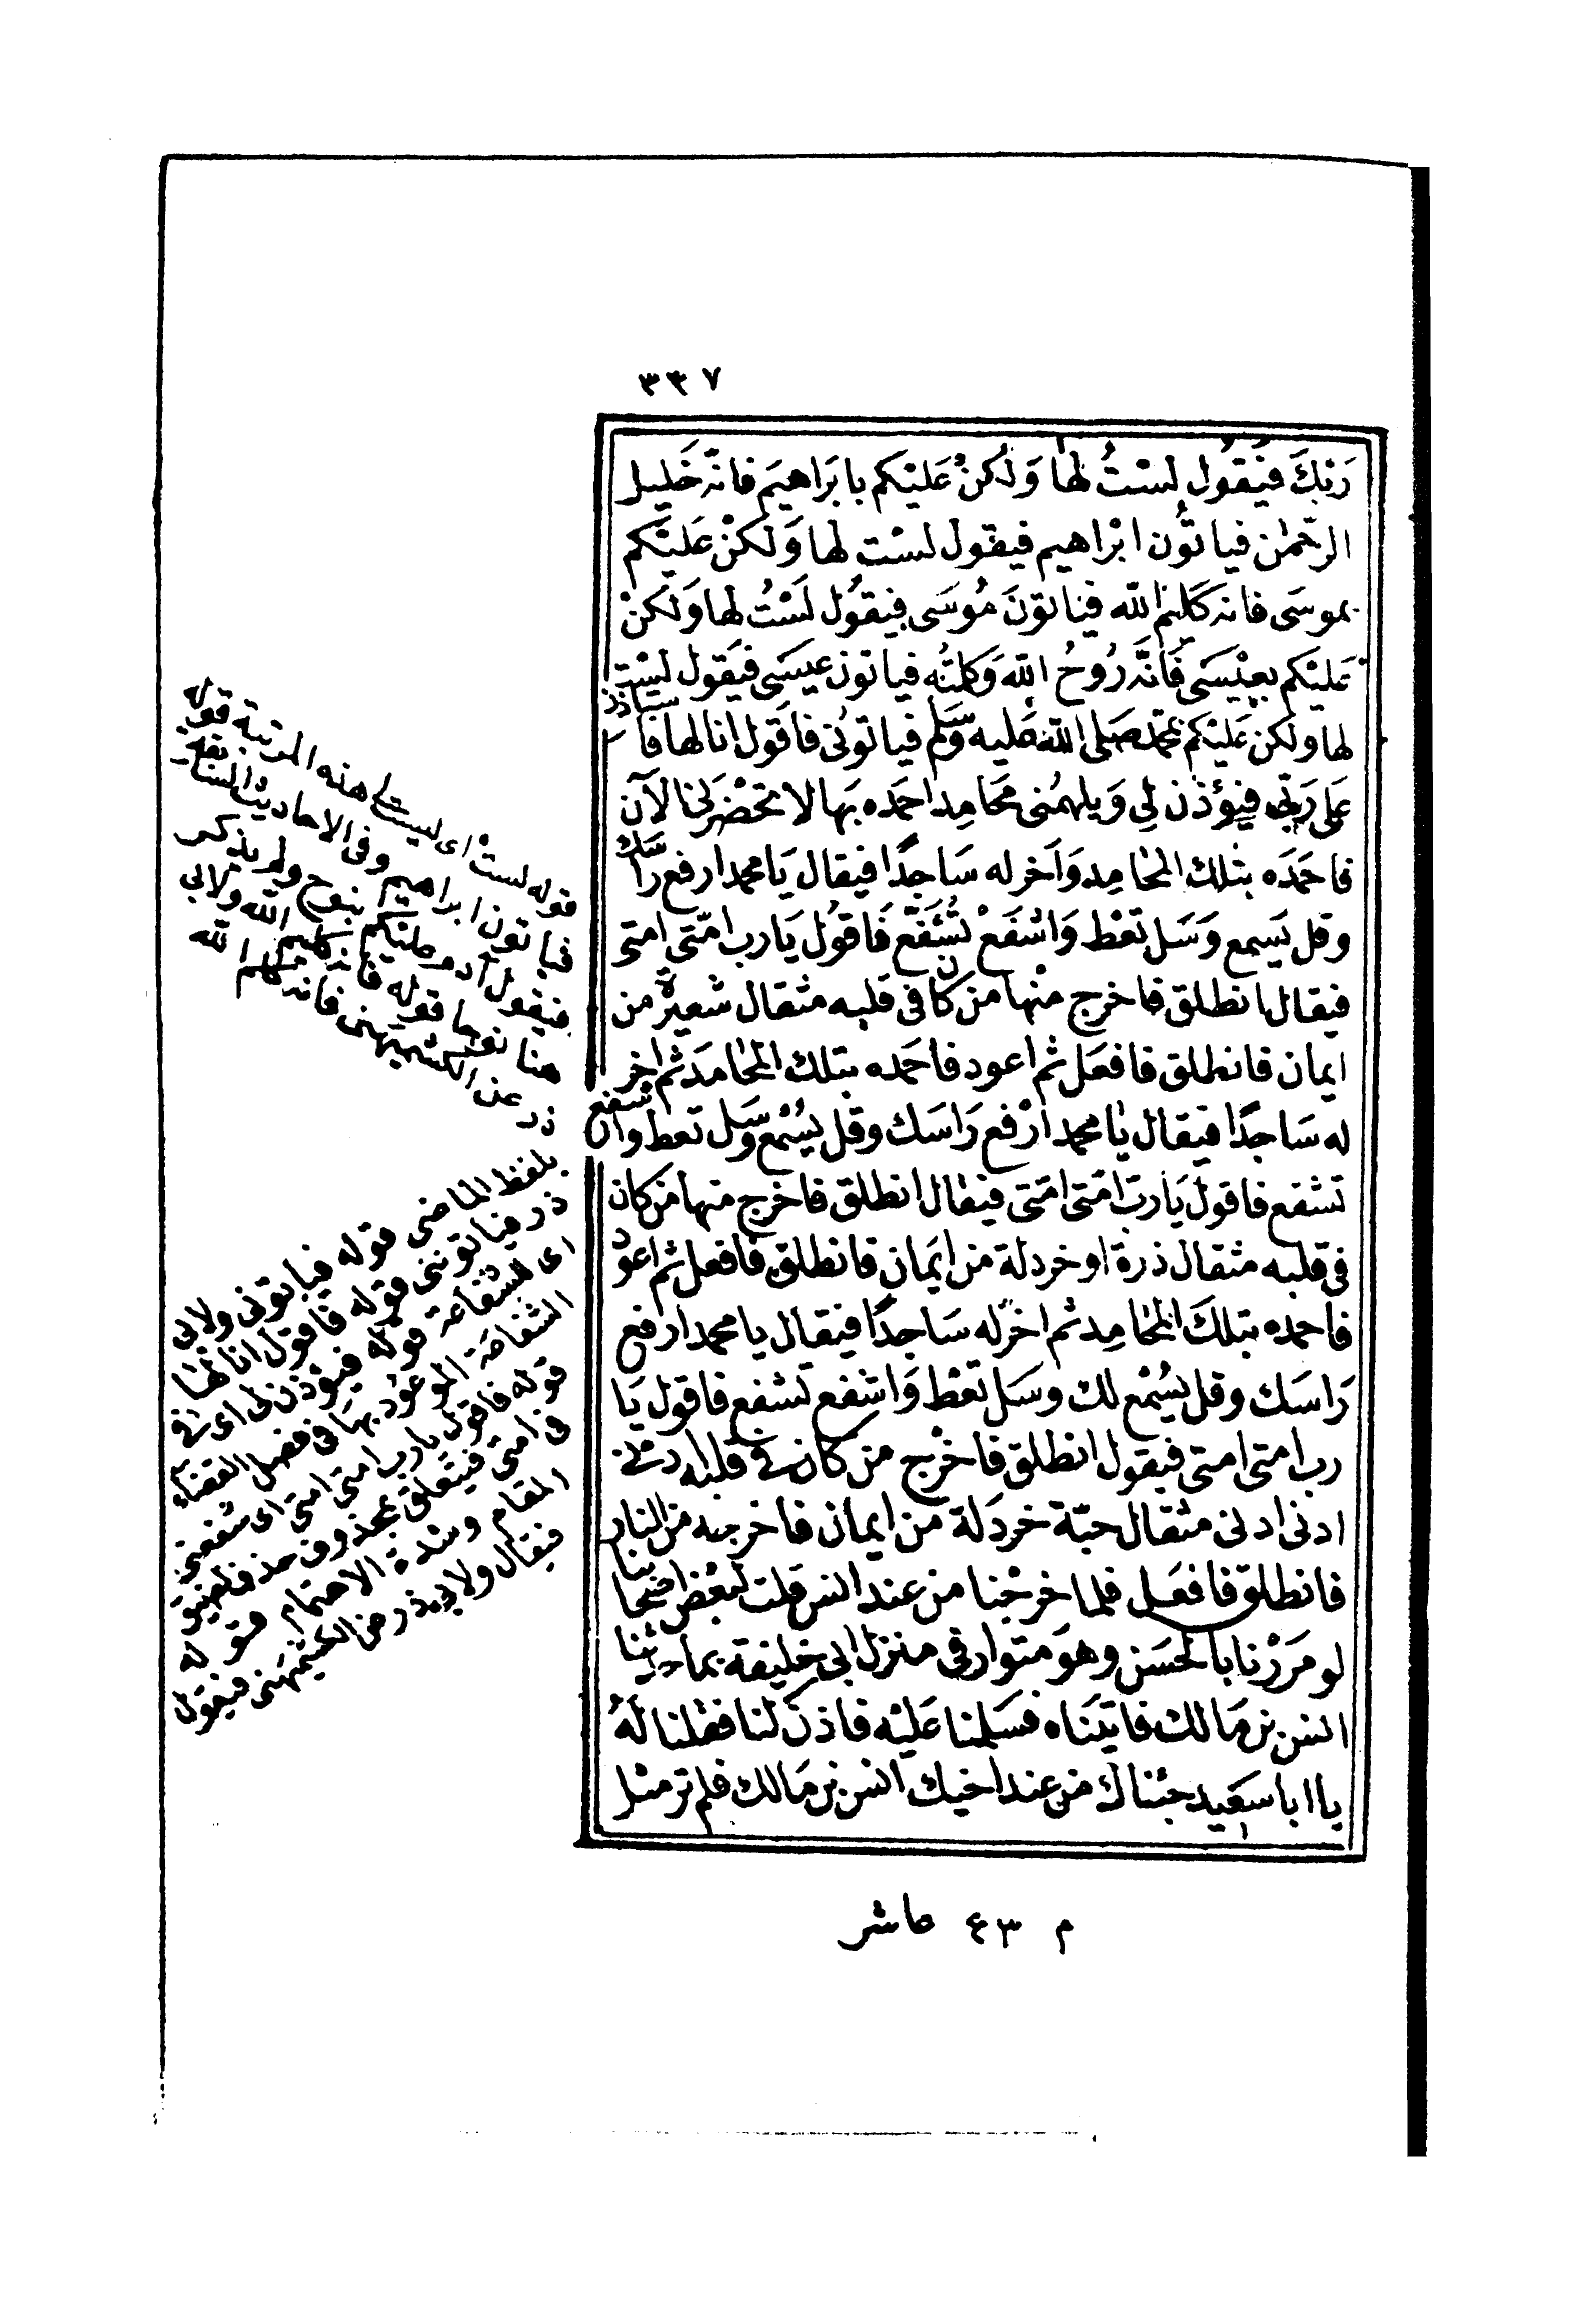 ٣٣٧
رَبّكَ فيَقُول لسْتُ لها وَلكنْ عَليْكم بابَراهيَم فانّه خَليل
الرحمٰن فياتوُن ابْراهيم فيقول لسْت لها وَلكنْ عَليْكم
بموسَى فانه كَليْم الله فياتونَ مُوسَى فيقوُل لَسْتُ لها وَلكنْ
عَليْكم بعِيْسَى فَانَّه رُوحُ الله وَكلمتُه فياتون عيسَى فيَقول لسْت
لها ولكن عَليْكم بمحمّد صَلى الله عَليه وسَلم فياتوُنى فاقَول انا لها فاستاذن
عَلى رَبّى فيؤذن لِي وَيلهمُنى محَامِد احمَده بهَا لا تحْضرُنى الآن
فاحمَدَه بتلك المحَامِد وَاَخر له سَاجِدًا فيقال يَا محمد ارفع رَاسَك
وقل يَسمع وَسَل تعَط وَاشفَعْ تُشَفّع فَاقوُل يَارب امّتى امتى
فيقال انطلق فاخرج منْها من كان فى قلبه مثقال شعيرةٍ من
ايمان فانطلق فافعَل ثم اعود فاحمَده بتلك المحَامدَ ثم اخر
له سَاجدًا فيقال يَا محمد ارْفع رَاسَك وقل يسُمْع وَسَل تعط واشفع
تشفع فاقول يَاربّ امّتى امّتى فيقال انطلق فاخرج منها من كان
فى قلبه مثقال ذرة او خردلة من ايمَان فانطلق فافعل ثم اعود
فاحمده بتلكَ المحَامِد ثم اخرّ له سَاجدًا فيقال يا محمد ارفع
رَاسَك وقل يسُمْع لك وسَل تعَط وَاشفع تشفع فاقول يَا
رب امتى امتى فيقول انطلق فاخْرج من كان فى قلبه ادنى
ادنى ادنى مثقال حبّة خردَلة من ايمان فاخرجه من النار
فانطلق فافعَل فلما خرجْنا من عند انس قلت لبَعْض اصْحابنا
لو مَررْنا بالحسَن وهوَ متوار فى منزل ابى خليفة بما حدثنا
انس بن مَالك فاتيَناه فسَلمنا عَليْه فاذن لنا فقلنا لهُ
يا ابا سعَيد جئناك من عند اخيك انس بن مَالك فلم نر مثل
م ٤٣ عاشر
قوله لستْ اى ليست لى هذه المرتبة قوله
فياتون ابراهيم وفى الاحاديث السابقة
فيقول آدم عليكم بنوح ولم يذكر
هنا نوحا قوله فانه كليم الله ولابى
ذر عن الكشميهنى فانه كلم الله
بلفظ الماضى قوله فياتونى ولابى
ذر فياتوننى قوله فاقول انا لها
اى للشفاعة قوله فيؤذن لى اى فى
الشفاعة الموعود بها فى فصل القضاء
قوله فاقول يارب امتى امتى اى شفعنى
فى امتى فيتعلق بمحذوف حذف لضيق
المقام وشدة الاهتمام قوله
فيقال ولابى ذر عن الكشميهنى فيقول